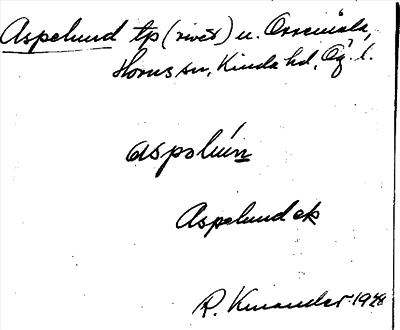 Aspelund tp (rivet) u. Orremåla,
Horns sn, Kinda hd, Ög. l.
aspolún
Aspelund ek
R. Kinander 1928